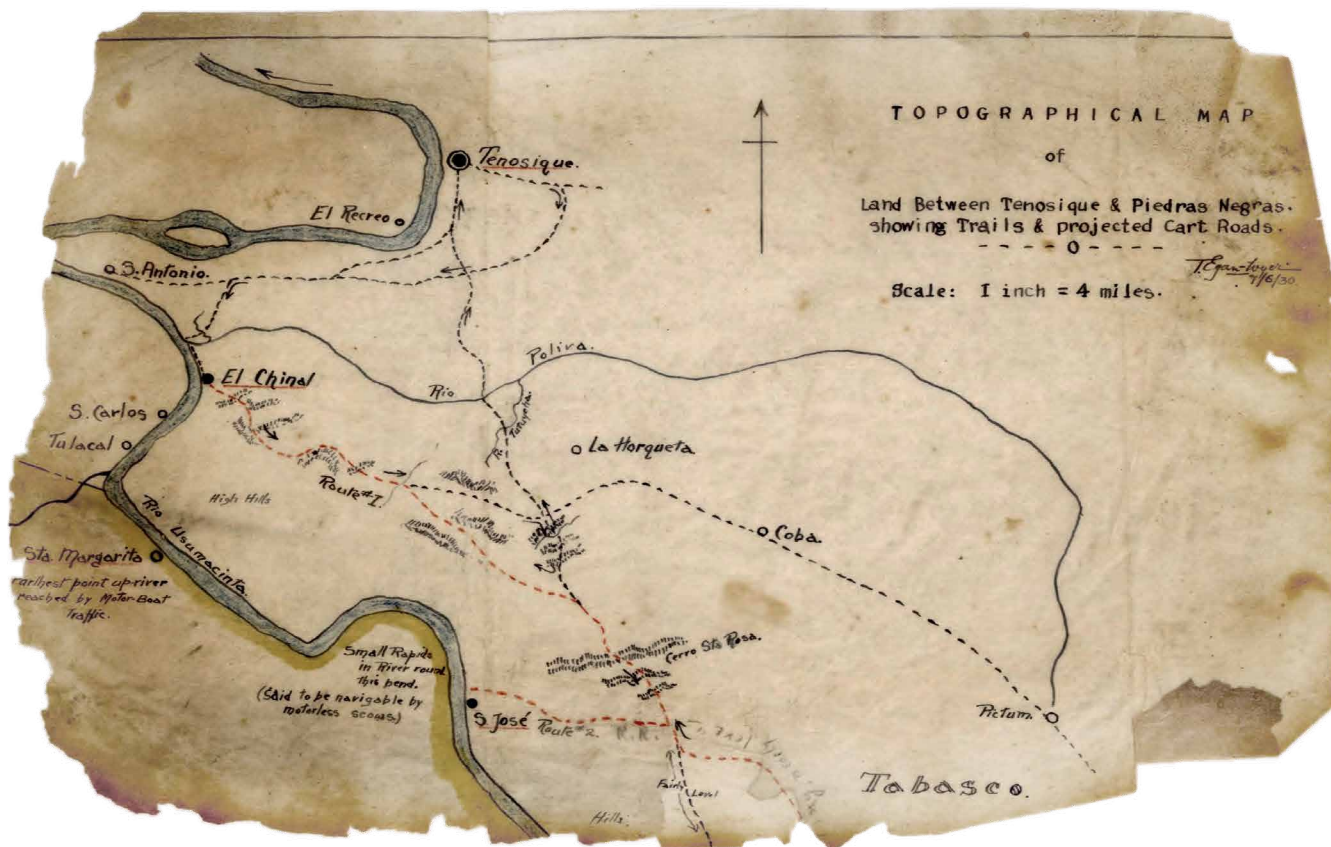 TOPOGRAPHICAL MAP
of
Land Between Tenosique & Piedras Negras.
showing Trails & projected Cart Roads.
O
7/6/30
Scale: I inch = 4 miles.
Tenosique.
El Recreo
S. Antonio.
Poliva.
Rio
El Chinal
S. Carlos
Tulacal
La Horqueta
Route #I
High Hills
Rio Usumacinta.
Coba.
Sta. Margarita
farthest point up-river
reached by Motor-Boat
Traffic.
Small Rapids
in River round
this bend.
(Said to be navigable by
motorless scows)
Cerro Sta Rosa.
S. José Route #2.
Pictum.
Fairly Level
Tabasco.
Hills.